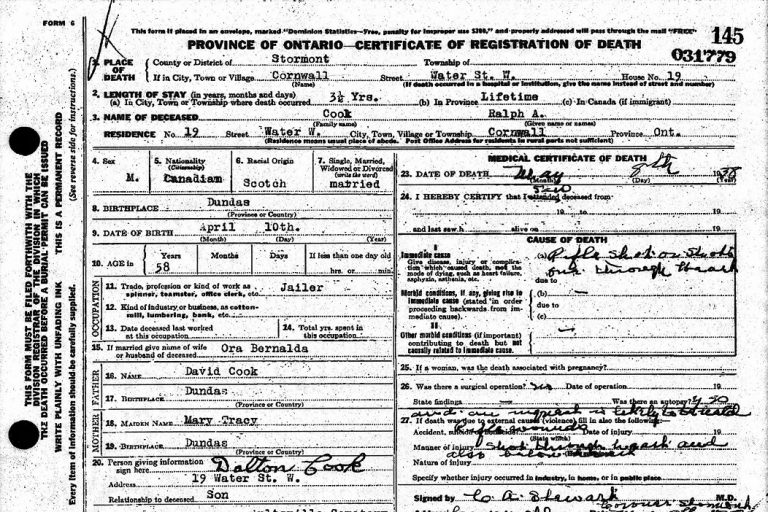 FORM 6
This form if placed in an envelope, marked "Dominion Statistics—Free, penalty for improper use $300," and properly addressed will pass through the mail "FREE"
145
PROVINCE OF ONTARIO—CERTIFICATE OF REGISTRATION OF DEATH
031779
1. PLACE OF DEATH
County or District of Stormont Township of
If in City, Town or Village Cornwall Street Water St. W. House No. 19
(Name) (If death occurred in a hospital or institution, give the name instead of street and number)
2. LENGTH OF STAY (in years, months and days)
(a) In City, Town or Township where death occurred 3½ Yrs. (b) In Province Lifetime (c) In Canada (if immigrant)
3. NAME OF DECEASED Cook Ralph A.
(Family name) (Given name or names)
RESIDENCE No. 19 Street Water W. City, Town, Village or Township Cornwall Province Ont.
(Residence means usual place of abode. Post Office Address for residents in rural parts not sufficient)
THIS FORM MUST BE FILED FORTHWITH WITH THE
DIVISION REGISTRAR OF THE DIVISION IN WHICH
THE DEATH OCCURRED BEFORE A BURIAL PERMIT CAN BE ISSUED
WRITE PLAINLY WITH UNFADING INK THIS IS A PERMANENT RECORD
Every item of information should be carefully supplied. (See reverse side for instructions.)
4. Sex
M.
5. Nationality
(Citizenship)
Canadian
6. Racial Origin
Scotch
7. Single, Married, Widowed or Divorced
(write the word)
married
8. BIRTHPLACE Dundas
(Province or Country)
9. DATE OF BIRTH April 10th.
(Month) (Day) (Year)
10. AGE in Years Months Days If less than one day old
58 hrs. or min.
OCCUPATION
11. Trade, profession or kind of work as spinner, teamster, office clerk, etc. Jailer
12. Kind of industry or business, as cotton-mill, lumbering, bank, etc.
13. Date deceased last worked at this occupation
14. Total yrs. spent in this occupation
15. If married give name of wife or husband of deceased Ora Bernalda
FATHER
16. NAME David Cook
17. BIRTHPLACE Dundas
(Province or Country)
MOTHER
18. MAIDEN NAME Mary Tracy
19. BIRTHPLACE Dundas
(Province or Country)
20. Person giving information sign here Dalton Cook
Address 19 Water St. W.
Relationship to deceased Son
MEDICAL CERTIFICATE OF DEATH
23. DATE OF DEATH May 8th 19
(Month) (Day) (Year)
24. I HEREBY CERTIFY that I attended deceased from
19 to 19
and last saw h alive on 19
CAUSE OF DEATH
I
Immediate cause
Give disease, injury or complication which caused death, not the mode of dying, such as heart failure, asphyxia, asthenia, etc.
(a) Rifle shot or shots
one through
due to
Morbid conditions, if any, giving rise to immediate cause (stated in order proceeding backwards from immediate cause).
(b)
due to
(c)
II
Other morbid conditions (if important) contributing to death but not causally related to immediate cause.
25. If a woman, was the death associated with pregnancy?
26. Was there a surgical operation? Date of operation 19
State findings Was there an autopsy?
and an inquest is likely to be held
27. If death was due to external causes (violence) fill in also the following:
Accident, Date of injury 19
(State which)
Manner of injury Shot through and
also
Nature of injury
Specify whether injury occurred in industry, in home, or in public place
Signed by C. A. Stewart M.D.
Coroner